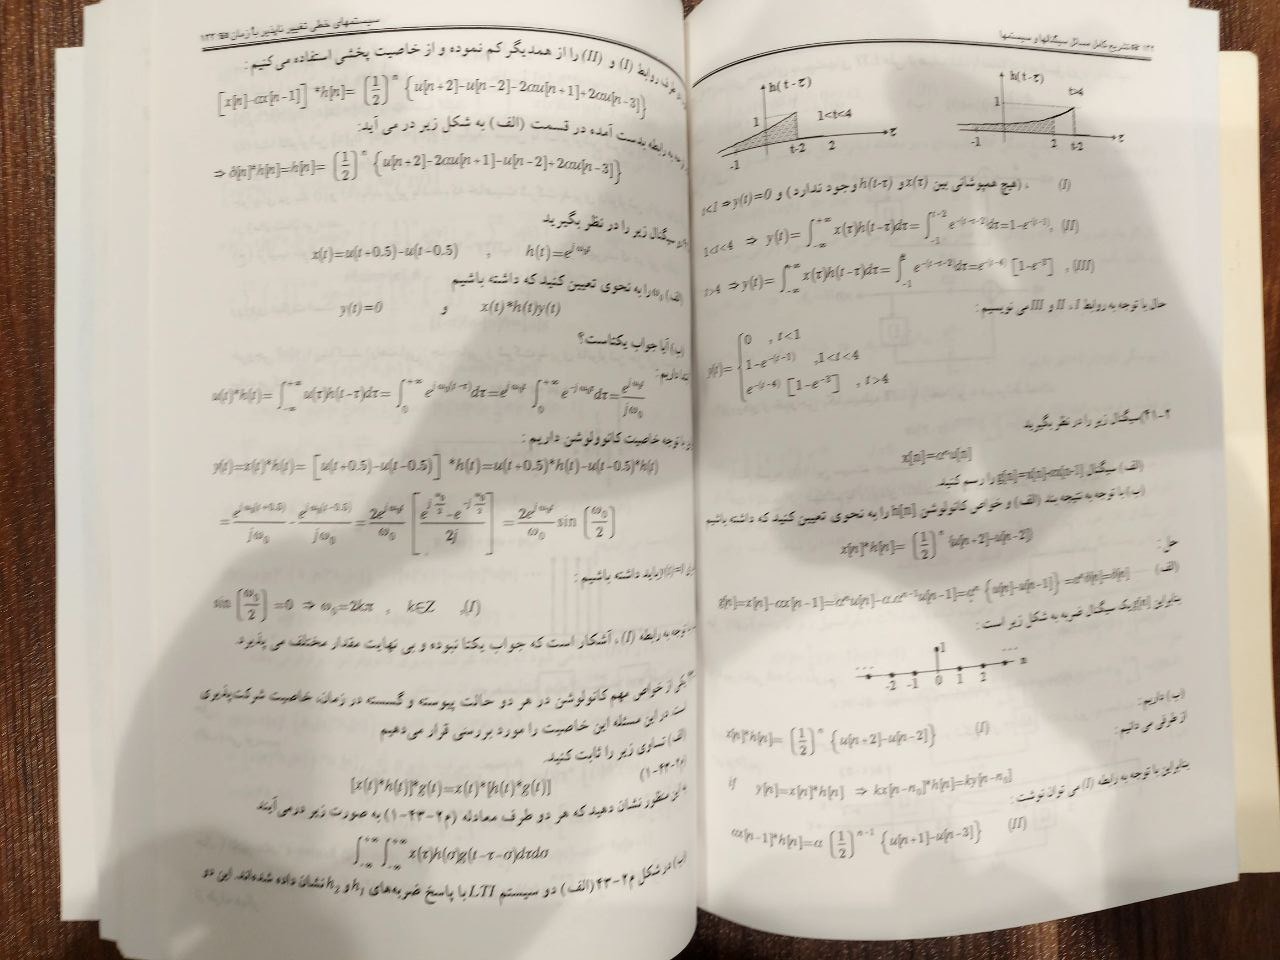 ۱۳۲ تشریح کامل مسائل سیگنالها و سیستمها
h(t-τ)
1
1<t<4
-1
t-2
2
τ
h(t-τ)
t>4
1
-1
2
t-2
τ
t<1 ⇒ y(t)=0 (هیچ همپوشانی بین x(τ) و h(t-τ) وجود ندارد) و , (I)
1<t<4 ⇒ y(t)= ∫_{-∞}^{+∞} x(τ)h(t-τ)dτ= ∫_{-1}^{t-2} e^{-(t-τ-2)}dτ=1-e^{-(t-1)}, (II)
t>4 ⇒ y(t)= ∫_{-∞}^{+∞} x(τ)h(t-τ)dτ= ∫_{-1}^{2} e^{-(t-τ-2)}dτ=e^{-(t-4)} [1-e^{-3}] , (III)
حال با توجه به روابط I ، II و III می نویسیم :
y(t)= { 0 , t<1
1-e^{-(t-1)} , 1<t<4
e^{-(t-4)} [1-e^{-3}] , t>4
۲-۴۱) سیگنال زیر را در نظر بگیرید.
x[n]=αⁿu[n]
الف) سیگنال g[n]=x[n]-αx[n-1] را رسم کنید.
ب) با توجه به نتیجه بند (الف) و خواص کانولوشن h[n] را به نحوی تعیین کنید که داشته باشیم
x[n]*h[n]= (1/2)^n {u[n+2]-u[n-2]}
حل :
الف) g[n]=x[n]-αx[n-1]=αⁿu[n]-α.αⁿ⁻¹u[n-1]=αⁿ {u[n]-u[n-1]} =αⁿδ[n]=δ[n]
بنابراین g[n] یک سیگنال ضربه به شکل زیر است :
1
... -2 -1 0 1 2 ... n
ب) داریم :
x[n]*h[n]= (1/2)^n {u[n+2]-u[n-2]} (I)
از طرفی می دانیم :
if y[n]=x[n]*h[n] ⇒ kx[n-n₀]*h[n]=ky[n-n₀]
بنابراین با توجه به رابطه (I) می توان نوشت :
αx[n-1]*h[n]=α (1/2)^{n-1} {u[n+1]-u[n-3]} (II)
سیستمهای خطی تغییر ناپذیر با زمان ۱۳۳
طرف روابط (I) و (II) را از همدیگر کم نموده و از خاصیت پخشی استفاده می کنیم :
[x[n]-αx[n-1]] *h[n]= (1/2)^n {u[n+2]-u[n-2]-2αu[n+1]+2αu[n-3]}
توجه به رابطه بدست آمده در قسمت (الف) به شکل زیر در می آید:
⇒ δ[n]*h[n]=h[n]= (1/2)^n {u[n+2]-2αu[n+1]-u[n-2]+2αu[n-3]}
سیگنال زیر را در نظر بگیرید.
x(t)=u(t+0.5)-u(t-0.5) , h(t)=e^{jω₀t}
الف) ω₀ را به نحوی تعیین کنید که داشته باشیم
y(t)=0 و x(t)*h(t)y(t)
ب) آیا جواب یکتاست؟
ابتدا داریم :
u(t)*h(t)= ∫_{-∞}^{+∞} u(τ)h(t-τ)dτ= ∫_{0}^{+∞} e^{jω₀(t-τ)}dτ=e^{jω₀t} ∫_{0}^{+∞} e^{-jω₀τ}dτ= e^{jω₀t}/jω₀
با توجه خاصیت کانولوشن داریم :
y(t)=x(t)*h(t)= [u(t+0.5)-u(t-0.5)] *h(t)=u(t+0.5)*h(t)-u(t-0.5)*h(t)
= e^{jω₀(t+0.5)}/jω₀ - e^{jω₀(t-0.5)}/jω₀ = 2e^{jω₀t}/ω₀ [(e^{jω₀/2}-e^{-jω₀/2})/2j] = 2e^{jω₀t}/ω₀ sin (ω₀/2)
y(t)=0 باید داشته باشیم :
sin (ω₀/2) =0 ⇒ ω₀=2kπ , k∈Z ,(I)
توجه به رابطه (I) ، آشکار است که جواب یکتا نبوده و بی نهایت مقدار مختلف می پذیرد.
یکی از خواص مهم کانولوشن در هر دو حالت پیوسته و گسسته در زمان، خاصیت شرکت‌پذیری
است. در این مسئله این خاصیت را مورد بررسی قرار می‌دهیم
الف) تساوی زیر را ثابت کنید.
[x(t)*h(t)]*g(t)=x(t)*[h(t)*g(t)] (م۲-۴۳-۱)
به این منظور نشان دهید که هر دو طرف معادله (م۲-۴۳-۱) به صورت زیر در می آیند
∫_{-∞}^{+∞} ∫_{-∞}^{+∞} x(τ)h(σ)g(t-τ-σ)dτdσ
ب) در شکل م۲-۴۳ (الف) دو سیستم LTI با پاسخ ضربه‌های h₁ و h₂ نشان داده شده‌اند. این دو